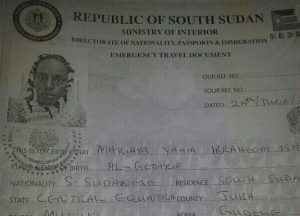 REPUBLIC OF SOUTH SUDAN
MINISTRY OF INTERIOR
DIRECTORATE OF NATIONALITY, PASSPORTS & IMMIGRATION
EMERGENCY TRAVEL DOCUMENT
OUR REF. NO.
YOUR REF. NO.
DATED: 24TH/JUNE/
THIS IS TO CERTIFY THAT MARIAM YAHIA IBRAHEEM ISH
PLACE & DATE OF BIRTH AL-GEDARIF
NATIONALITY S. SUDANESE RESIDENCE SOUTH SUDA
STATE CENTRAL EQUATORIA COUNTY JUBA